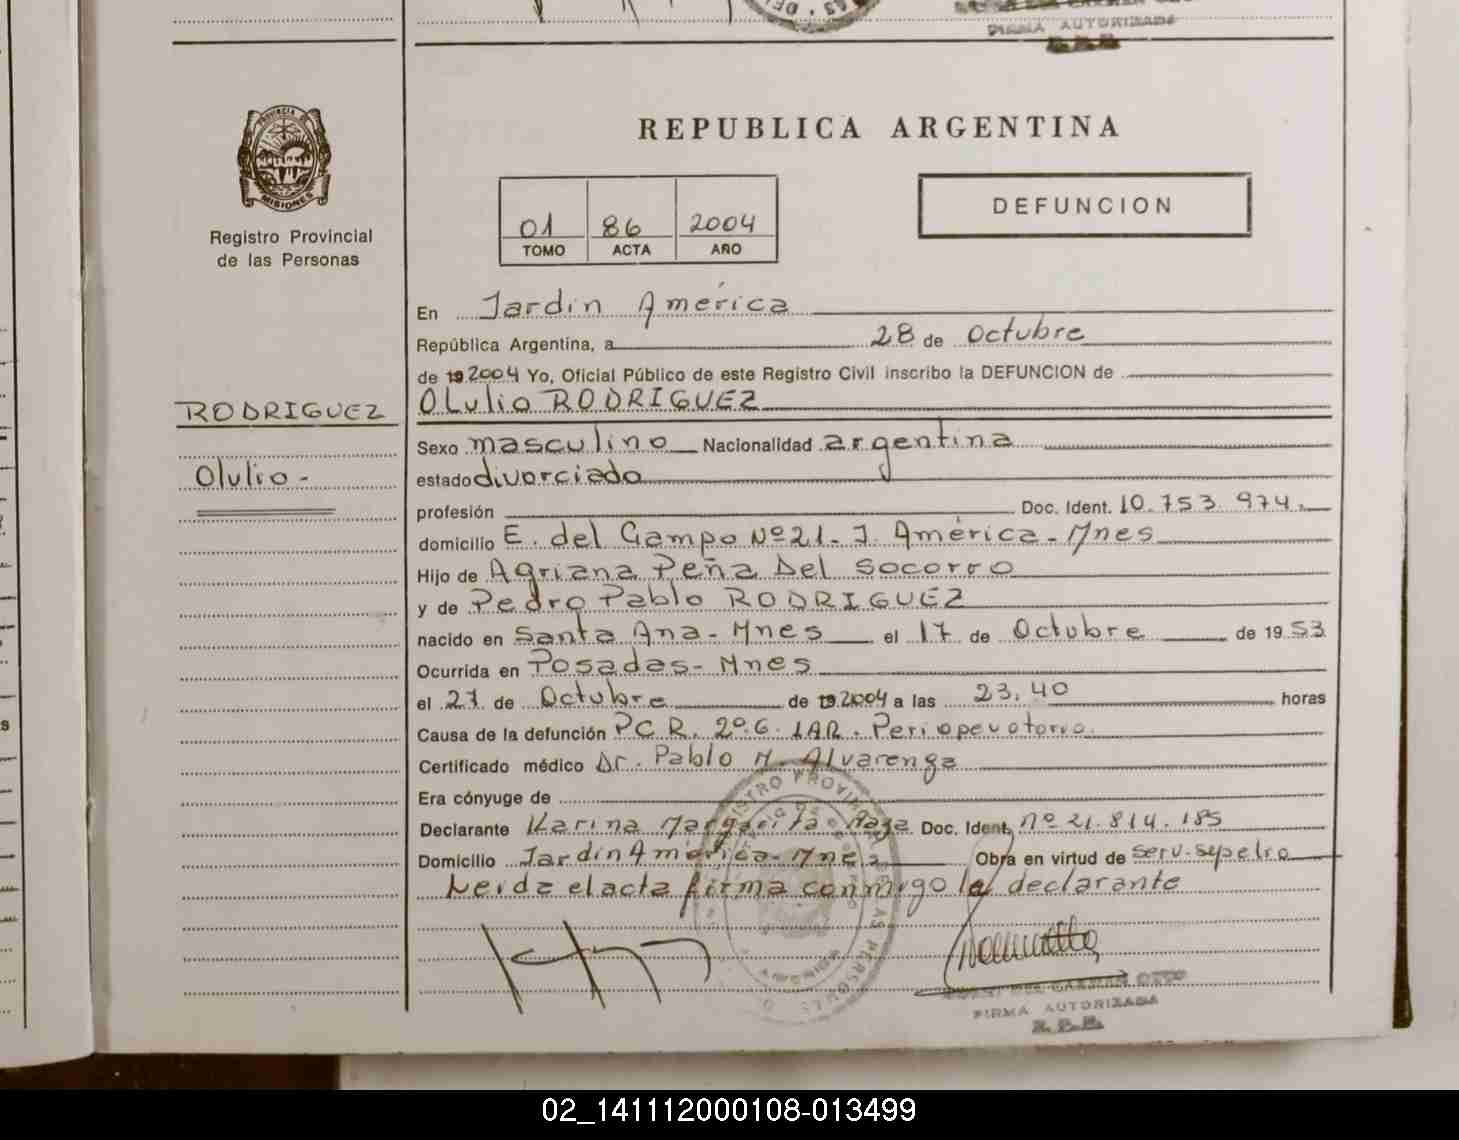 FIRMA AUTORIZADA
PROVINCIA DE
MISIONES
Registro Provincial
de las Personas
REPUBLICA ARGENTINA
01 86 2004
TOMO ACTA AÑO
DEFUNCION
En Jardín América
República Argentina, a 28 de Octubre
de 19 2004 Yo, Oficial Público de este Registro Civil inscribo la DEFUNCION de
RODRIGUEZ
Olulio RODRIGUEZ
Sexo masculino Nacionalidad argentina
Olulio -
estado divorciado
profesión Doc. Ident. 10.753.974.
domicilio E. del Campo Nº 21 - J. América - Mnes
Hijo de Agriana Peña Del Socorro
y de Pedro Pablo RODRIGUEZ
nacido en Santa Ana - Mnes el 17 de Octubre de 1953
Ocurrida en Posadas - Mnes
el 27 de Octubre de 19 2004 a las 23.40 horas
Causa de la defunción P.C.R. 2º.6. IAR.
Certificado médico Dr. Pablo M. Alvarenga
Era cónyuge de
Declarante Karina Margarita Doc. Ident. nº 21.814.185
Domicilio Jardín América - Mnes Obra en virtud de serv. sepelio
Leída el acta firma conmigo la declarante
REGISTRO PROVINCIAL DE LAS PERSONAS
MISIONES
FIRMA AUTORIZADA
02_141112000108-013499